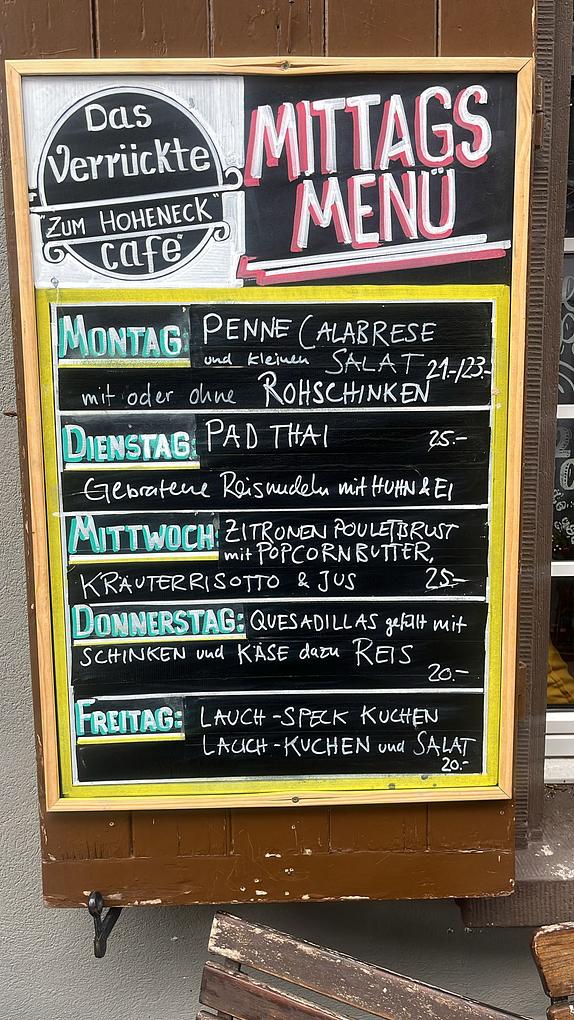 Das
Verrückte
"ZUM HOHENECK"
café
MITTAGS
MENÜ
MONTAG: PENNE CALABRESE
und kleinen SALAT 21.-/23.-
mit oder ohne ROHSCHINKEN
DIENSTAG: PAD THAI 25.-
Gebratene Reisnudeln mit HUHN & EI
MITTWOCH: ZITRONEN POULETBRUST
mit POPCORNBUTTER,
KRÄUTERRISOTTO & JUS 25.-
DONNERSTAG: QUESADILLAS gefüllt mit
SCHINKEN und KÄSE dazu REIS
20.-
FREITAG: LAUCH-SPECK KUCHEN
LAUCH-KUCHEN und SALAT
20.-